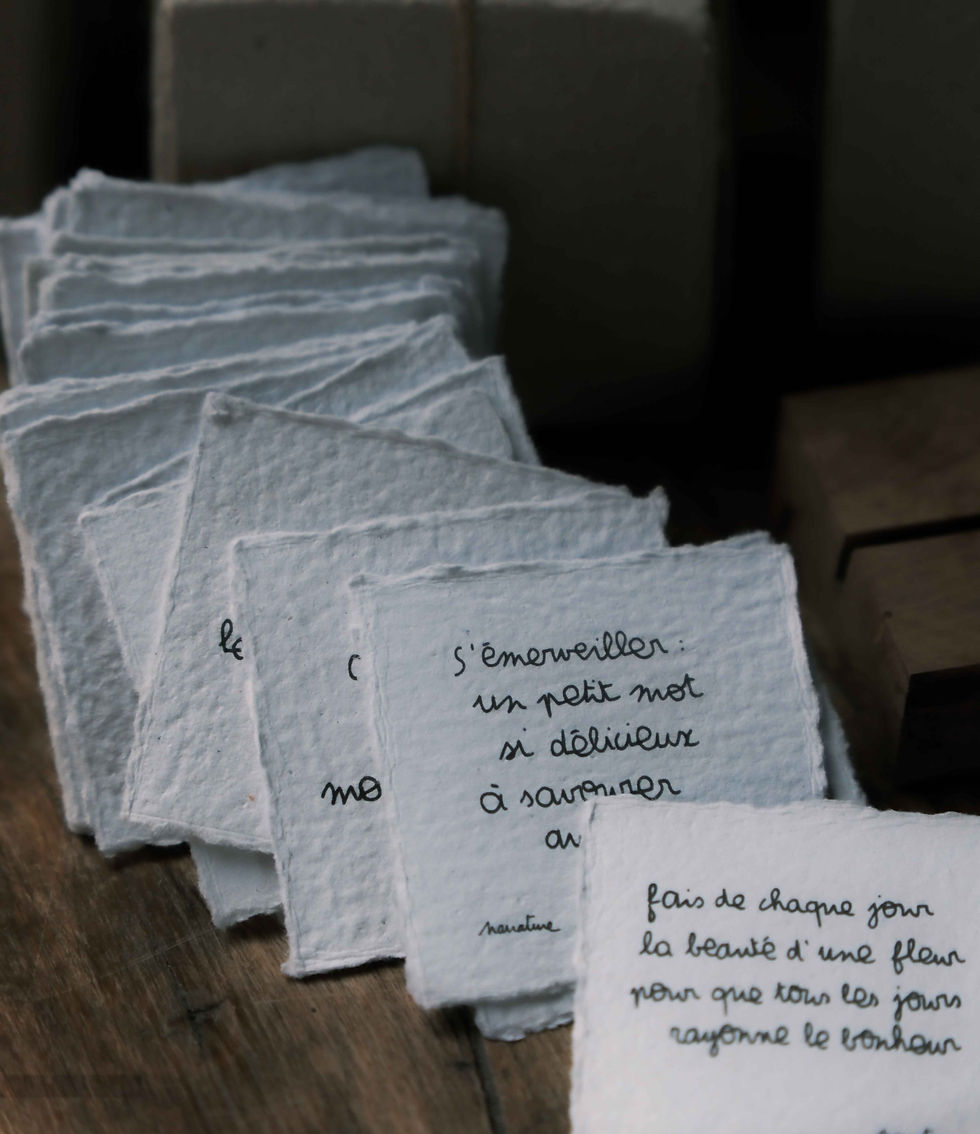 le
mo
s'émerveiller :
un petit mot
si délicieux
à savourer
au
narrative
fais de chaque jour
la beauté d'une fleur
pour que tous les jours
rayonne le bonheur